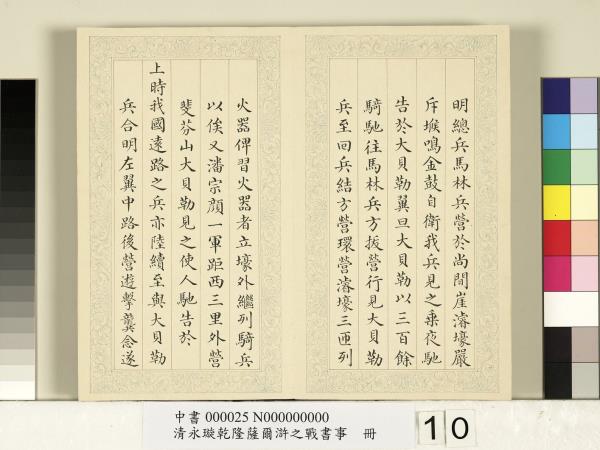 明總兵馬林兵營於尚間崖濬壕嚴
斥堠鳴金鼓自衛我兵見之乘夜馳
告於大貝勒翼旦大貝勒以三百餘
騎馳往馬林兵方拔營行見大貝勒
兵至回兵結方營環營濬壕三匝列
火器俾習火器者立壕外繼列騎兵
以俟又潘宗顏一軍距西三里外營
斐芬山大貝勒見之使人馳告於
上時我國遠路之兵亦陸續至與大貝勒
兵合明左翼中路後營遊擊龔念遂
中書 000025 N000000000
清永璇乾隆薩爾滸之戰書事 冊
10